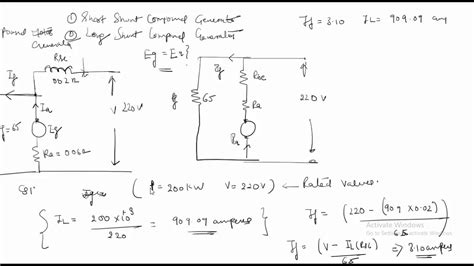 ① Short Shunt Compound Generator
② Long Shunt Compound Generator
Eg = E2?
If = 3.10 IL = 909.09 am
Rse
0.02 Ω
If
Ia
Eg
f = 65
Ra = 0.062
V 220V
If
65
Rse
Ra
220V
(P = 200 KW V = 220V) ← Rated Values.
IL = 200 × 10³ / 220 = 909.09 amperes
If = (220 - (909 × 0.02)) / 65
If = (V - IL(Rse)) / 65 ⇒ 3.10 ampere
Activate Windows
Go to Settings to activate Windows.